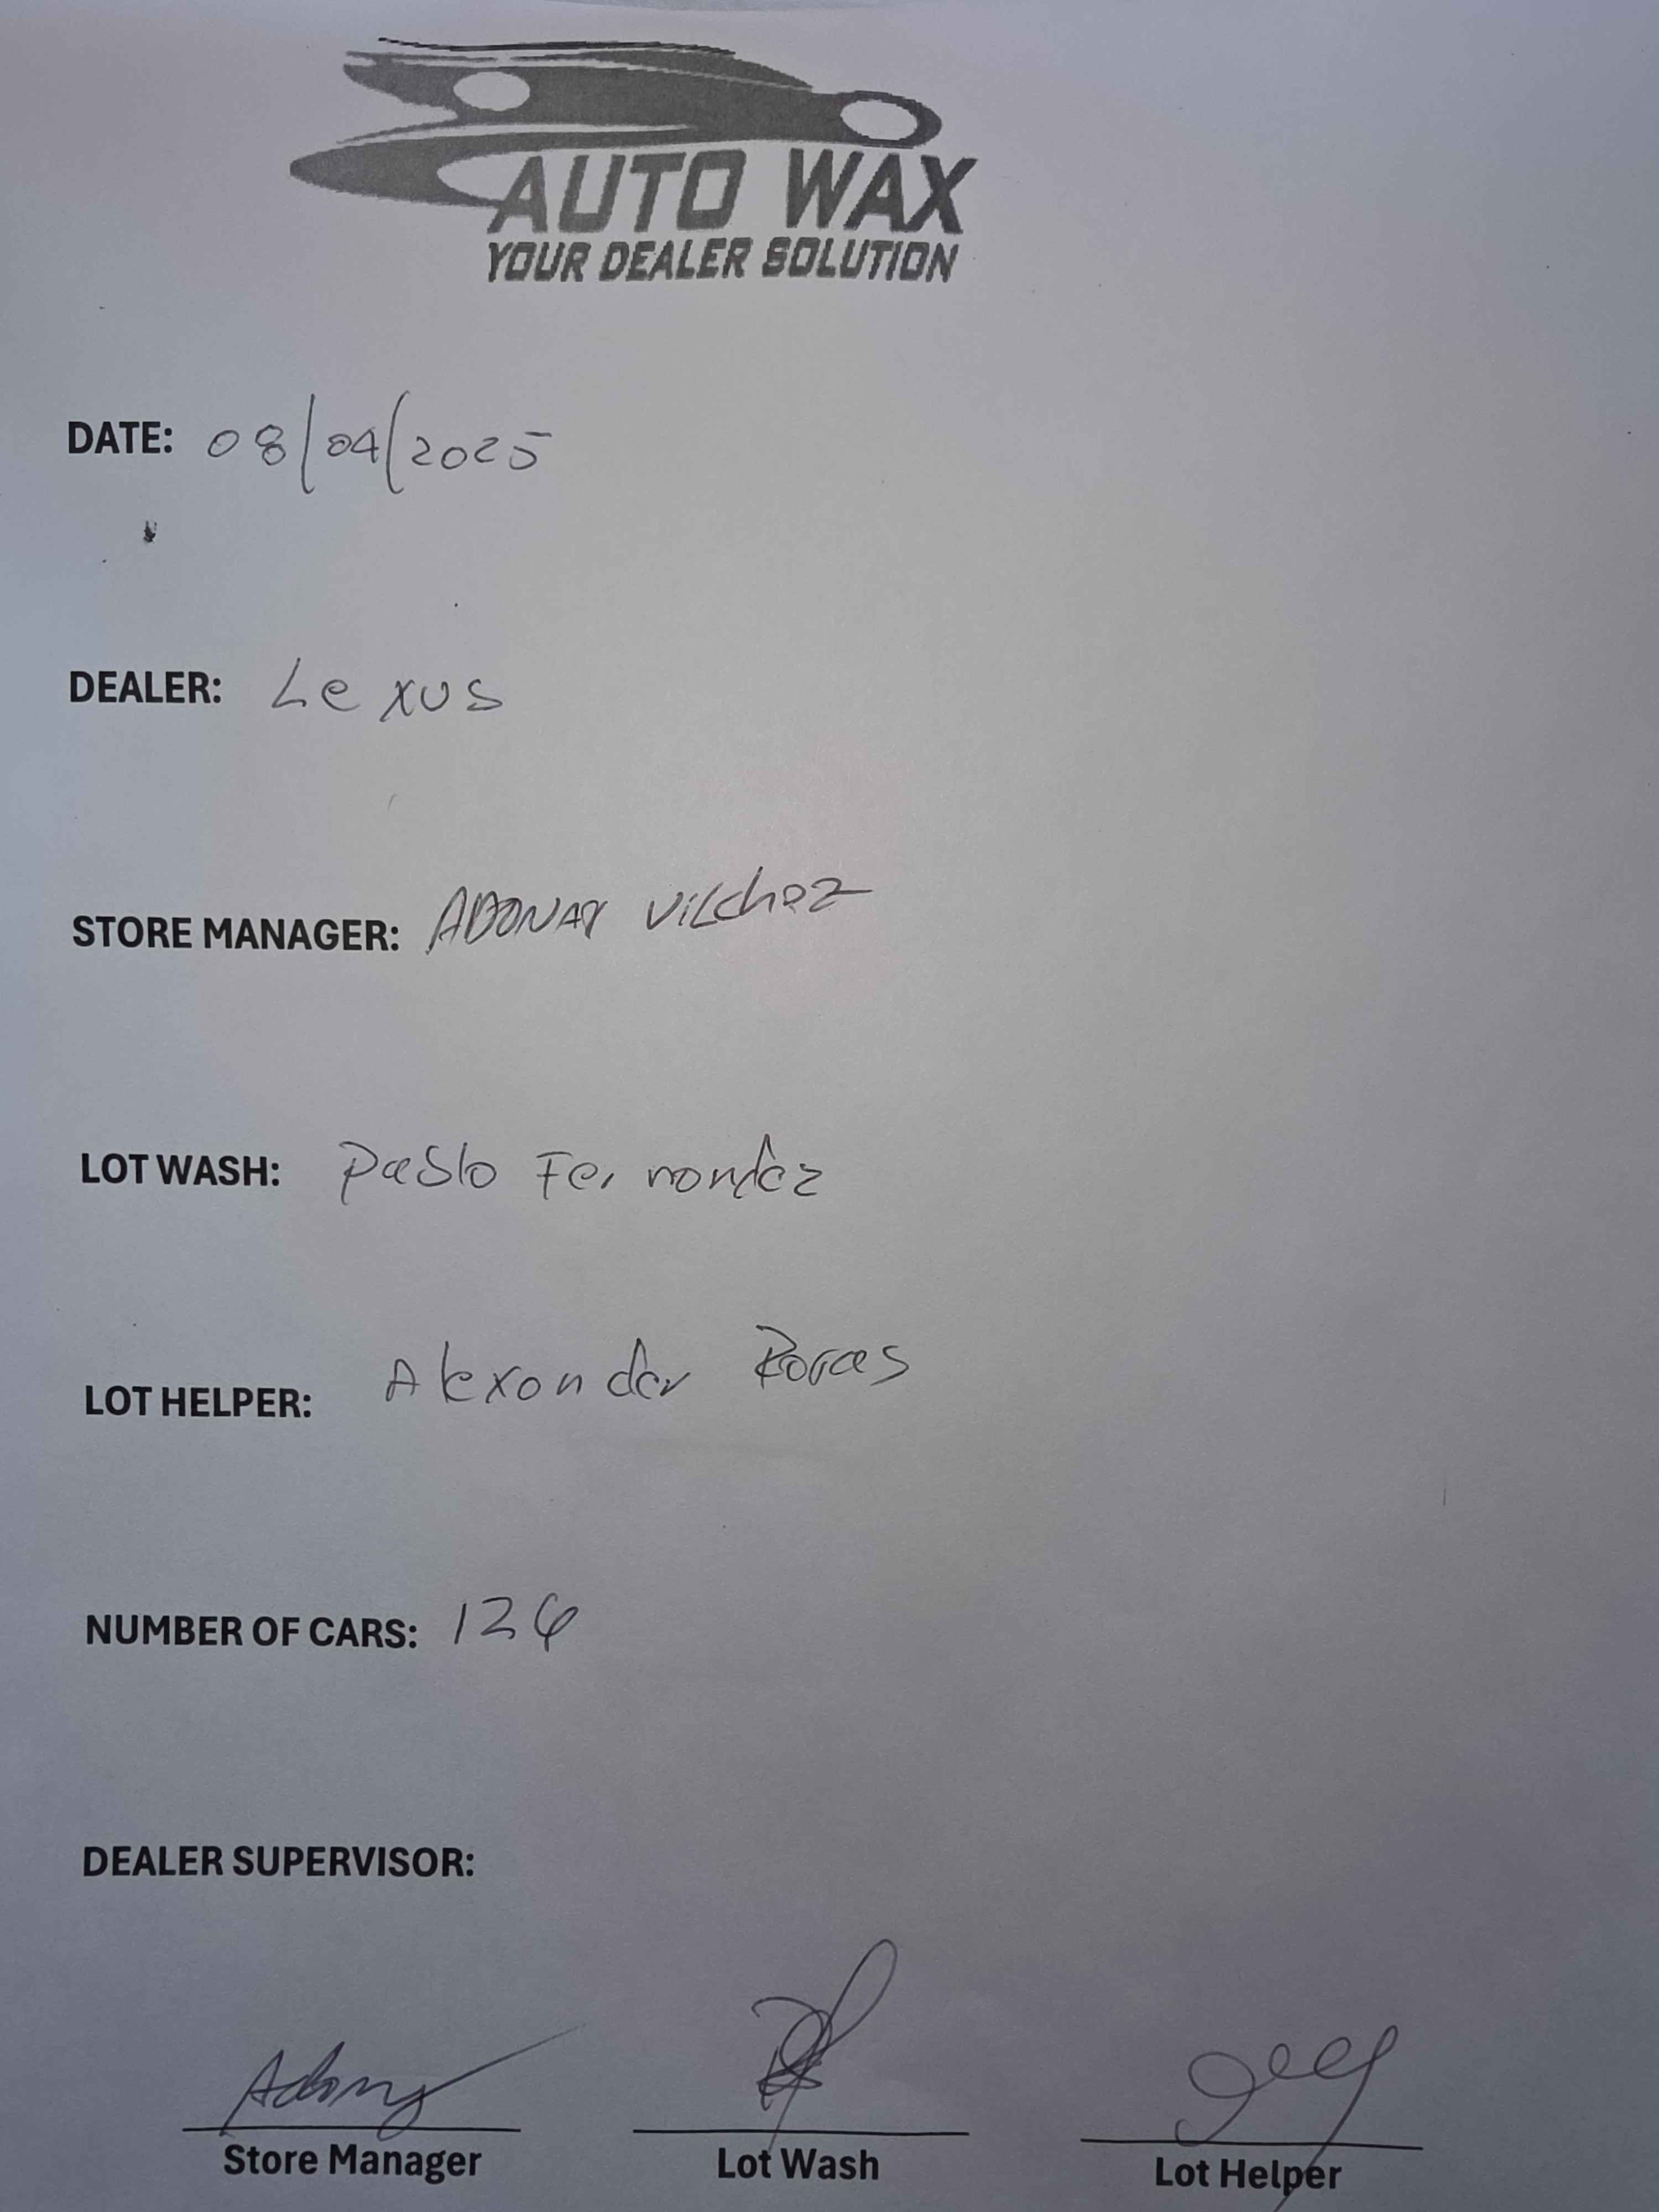 AUTO WAX
YOUR DEALER SOLUTION
DATE: 08/04/2025
DEALER: Lexus
STORE MANAGER: ADONAY Vilchez
LOT WASH: Pablo Fernandez
LOT HELPER: Alexander
NUMBER OF CARS: 126
DEALER SUPERVISOR:
Store Manager
Lot Wash
Lot Helper